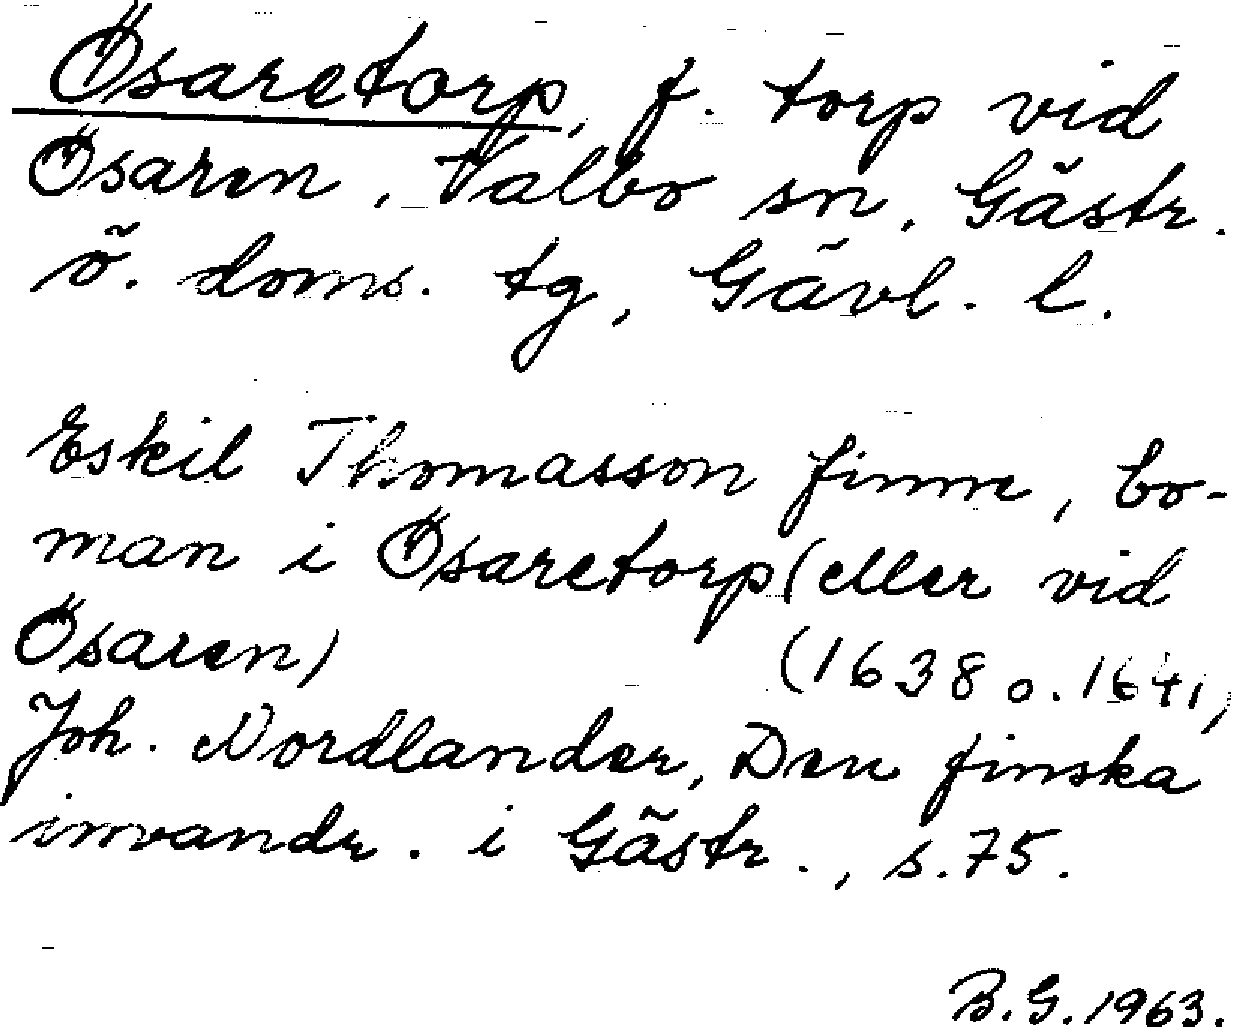 Ösaretorp, f. torp vid
Ösaren, Valbo sn, Gästr.
ö. doms. tg, Gävl. l.
Eskil Thomasson finne, bo-
man i Ösaretorp (eller vid
Ösaren) (1638 o. 1641,
Joh. Nordlander, Den finska
invandr. i Gästr., s. 75.
B.G. 1963.